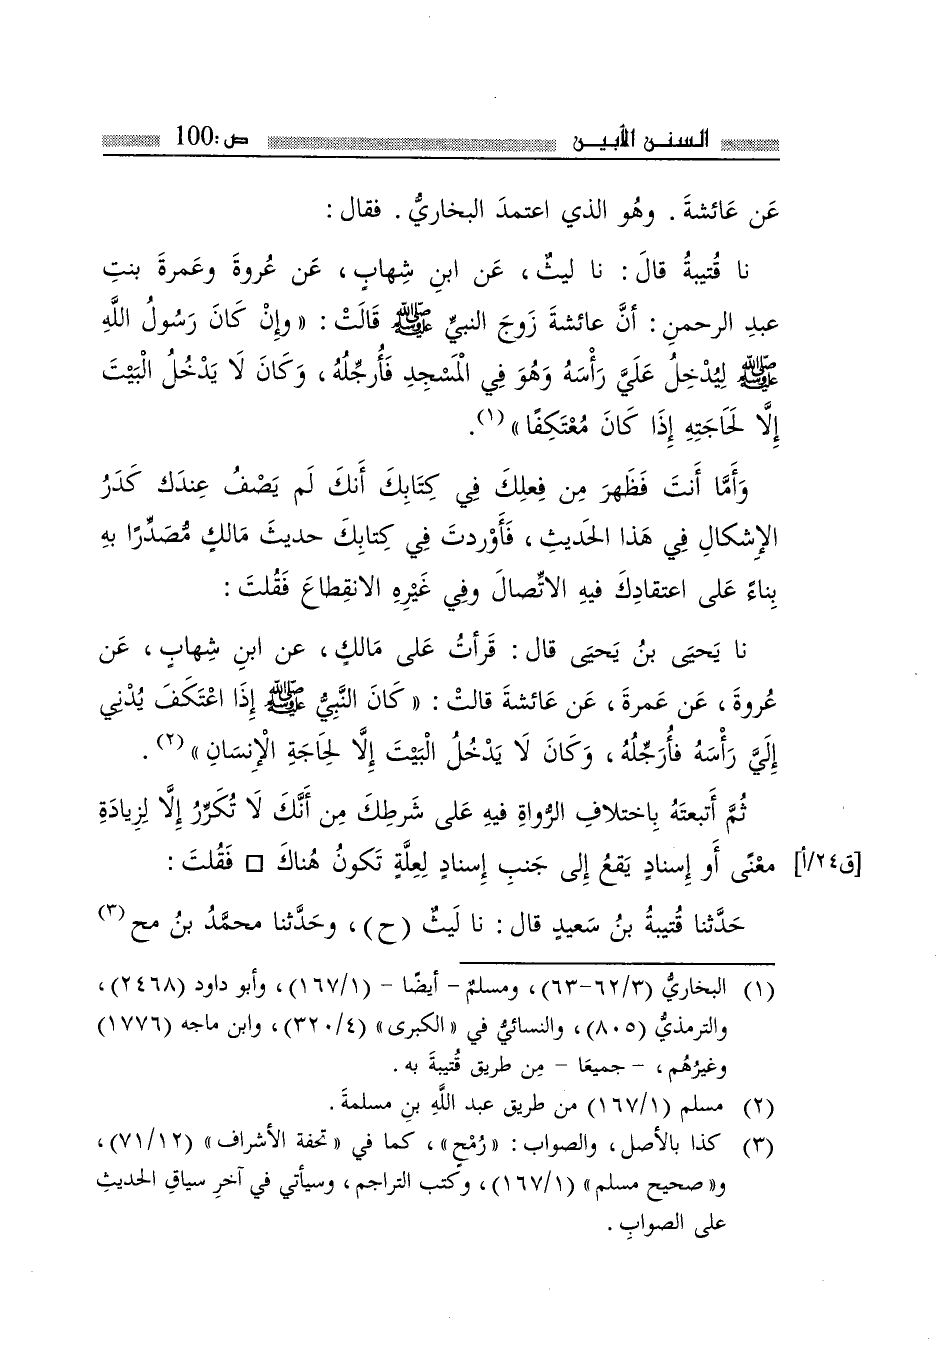 السنن الأبين ص:100
عَن عَائشةَ . وهُو الذي اعتمدَ البخاريُّ . فقال :
نا قُتيبةُ قالَ : نا ليثٌ ، عَن ابنِ شِهابٍ ، عَن عُروةَ وعَمرةَ بنتِ
عبدِ الرحمنِ : أنَّ عائشةَ زَوجَ النبيِّ ﷺ قَالَتْ : « وإِنْ كَانَ رَسُولُ اللَّهِ
ﷺ لِيُدْخِلُ عَلَيَّ رَأْسَهُ وَهُوَ فِي الْمَسْجِدِ فَأُرجِّلُهُ ، وَكَانَ لَا يَدْخُلُ الْبَيْتَ
إِلَّا لَحَاجَتِهِ إِذَا كَانَ مُعْتَكِفًا »(١).
وَأَمَّا أَنتَ فَظَهرَ مِن فِعلِكَ فِي كِتَابِكَ أَنكَ لَم يَصْفُ عِندَك كَدَرُ
الإِشكالِ فِي هَذا الحَديثِ ، فَأَوْردتَ فِي كِتابِكَ حديثَ مَالكٍ مُّصَدِّرًا بهِ
بِناءً عَلى اعتقادِكَ فيهِ الاتِّصالَ وفِي غَيْرِهِ الانقِطاعَ فَقُلتَ :
نا يَحيَى بنُ يَحيَى قال : قَرأتُ عَلى مَالكٍ ، عن ابنِ شِهابٍ ، عَن
عُروةَ ، عَن عَمرةَ ، عَن عَائشةَ قالتْ : « كَانَ النَّبِيُّ ﷺ إِذَا اعْتَكَفَ يُدْنِي
إِلَيَّ رَأْسَهُ فأُرَجِّلُهُ ، وَكَانَ لَا يَدْخُلُ الْبَيْتَ إِلَّا لِحَاجَةِ الْإِنسَانِ »(٢) .
ثُمَّ أَتبعتَهُ بِاختلافِ الرُّواةِ فيهِ عَلى شَرطِكَ مِن أَنَّكَ لَا تُكَرِّرُ إِلَّا لِزيادَةِ
[ق٢٤/أ] معْنًى أَو إِسنادٍ يَقعُ إِلى جَنبِ إِسنادٍ لِعِلَّةٍ تَكونُ هُناكَ □ فَقُلتَ :
حَدَّثنا قُتيبةُ بنُ سَعيدٍ قال : نا لَيثٌ (ح) ، وحَدَّثنا محمَّدُ بنُ مح (٣)
(١) البخاريُّ (٣/٦٢-٦٣)، ومسلمٌ - أيضًا - (١/١٦٧)، وأبو داود (٢٤٦٨)،
والترمذيُّ (٨٠٥)، والنسائيُّ في «الكبرى» (٤/٣٢٠)، وابن ماجه (١٧٧٦)
وغيرُهُم ، - جميعَا - مِن طريق قُتيبةَ به .
(٢) مسلم (١/١٦٧) من طريق عبد اللَّهِ بنِ مسلمةَ .
(٣) كذا بالأصل ، والصواب : «رُمْحٍ» ، كما في «تحفة الأشراف» (١٢/٧١)،
و«صحيح مسلم» (١/١٦٧)، وكتب التراجم ، وسيأتي في آخرِ سياقِ الحديثِ
على الصوابِ .